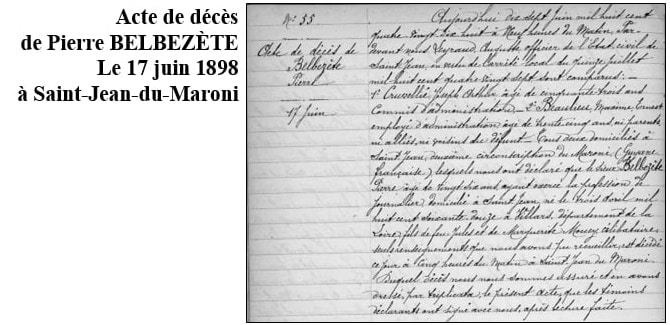 Acte de décès
de Pierre BELBEZÈTE
Le 17 juin 1898
à Saint-Jean-du-Maroni
N° 55
Acte de décès de
Belbezète
Pierre
17 Juin
Aujourd'hui dix sept Juin mil huit cent
quatre vingt dix huit à Neuf heures du Matin, Par
devant nous Leyraud, Auguste officier de l'Etat civil de
Saint Jean, en vertu de l'arrêté local du quinze Juillet
mil huit cent quatre vingt sept sont comparus:
1° Cruvellié, Joseph Arthur âgé de cinquante trois ans
Commis d'administration — 2° Beaulieu, Maxime, Ernest
employé d'administration âgé de trente cinq ans ni parents
ni alliés, ni voisins du défunt — Tous deux domiciliés à
Saint Jean, deuxième circonscription du Maroni (Guyane
française) lesquels nous ont déclaré que le sieur Belbezète
Pierre âgé de vingt six ans ayant exercé la profession de
journalier domicilié à Saint Jean, né le trois août mil
huit cent soixante douze à Villars, département de la
Loire, fils de feu Jules et de Marguerite célibataire,
seuls renseignements que nous avons pu recueillir, est décédé
ce jour, à Cinq heures du Matin à Saint Jean du Maroni.
Duquel décès nous nous sommes assuré et en avons
dressé, par triplicata, le présent acte, que les témoins
déclarants ont signé avec nous, après lecture faite.